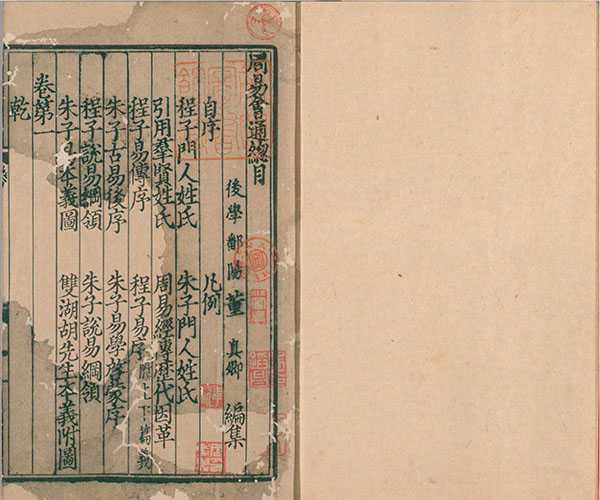 周易會通總目
後學鄱陽董真卿編集
自序 凡例
程子門人姓氏 朱子門人姓氏
引用羣賢姓氏 周易經傳歷代因革
程子易傳序 程子易序 附上下篇義
朱子古易後序 朱子易學啓蒙序
程子說易綱領 朱子說易綱領
朱子易本義圖 雙湖胡先生本義附圖
卷第一
乾